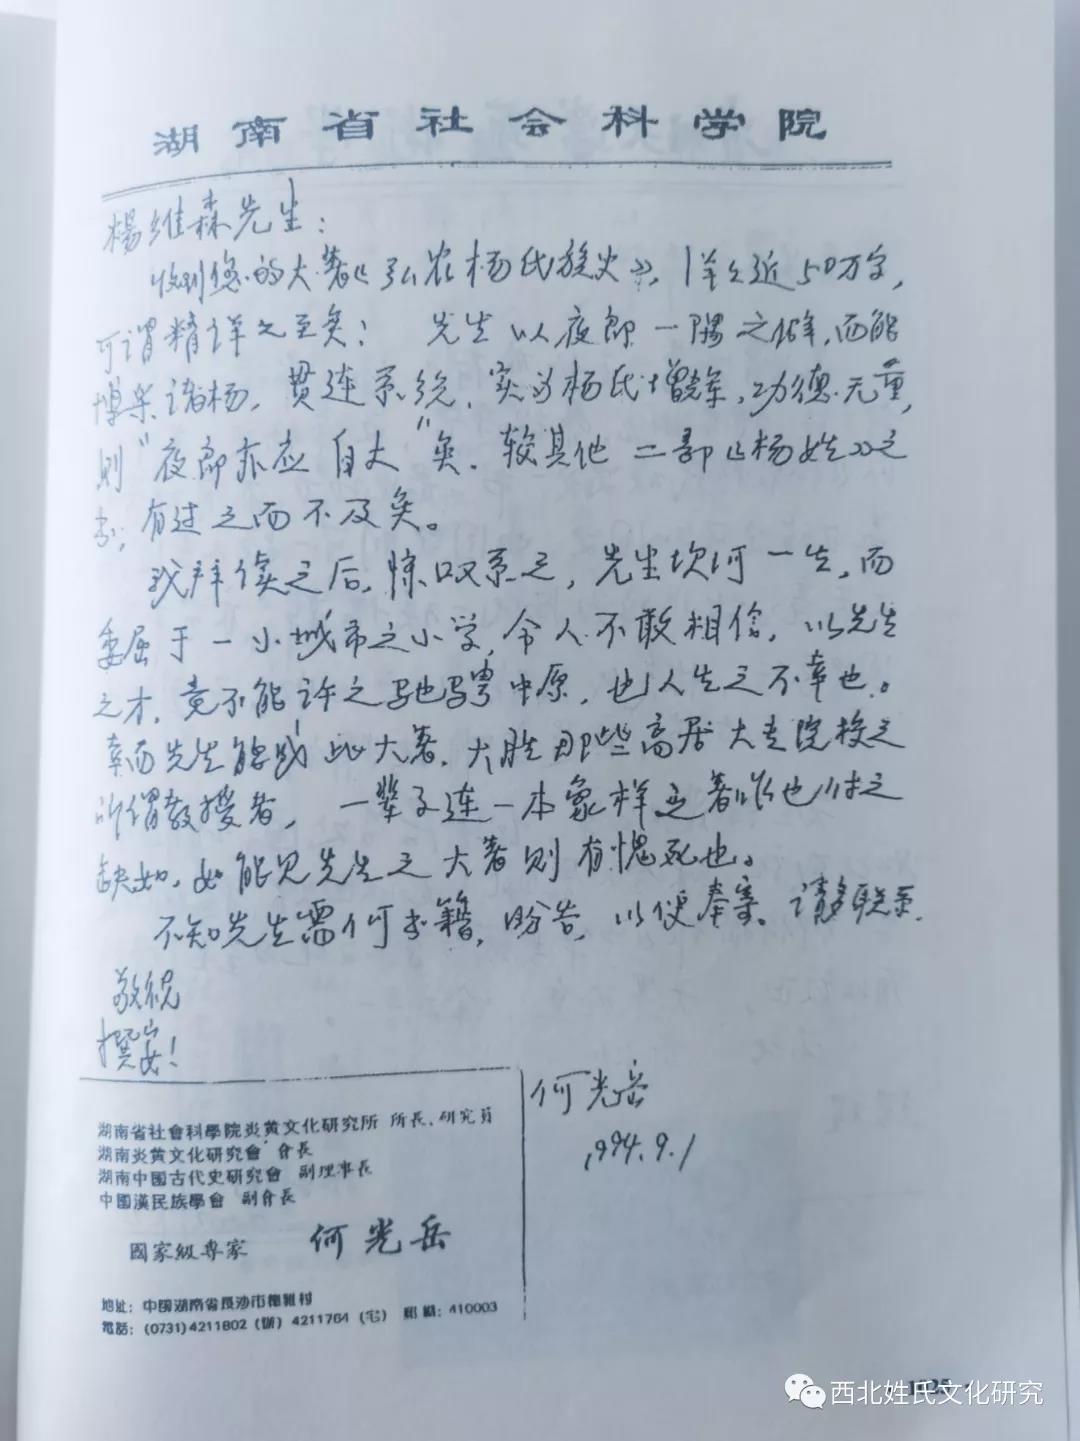 湖南省社会科学院
楊维森先生：
收到您的大著《弘农杨氏族史》，洋々近50万字，
可谓精详之至矣！ 先生以夜郎一隅之 ，而能
博采诸杨，贯连系统，实为杨氏增 ，功德无量，
则“夜郎亦应自大”矣。较其他二部《杨姓》之
书，有过之而不及矣。
我拜读之后，惊叹系之，先生坎坷一生，而
委屈于一小城市之小学，令人不敢相信，以先生
之才，竟不能许之驰骋中原，也人生之不幸也。
幸而先生能成此大著，大胜那些高居大专院校之
所谓教授者，一辈子连一本象样之著作也付之
缺如，如能见先生之大著则有愧死也。
不知先生需何书籍，盼告，以便奉寄。请多联系。
敬祝
撰安！
何光岳
1994.9.1
湖南省社會科學院炎黄文化研究所 所長、研究員
湖南炎黄文化研究會 會長
湖南中國古代史研究會 副理事長
中國漢民族學會 副會長
國家級専家 何光岳
地址：中國湖南省長沙市德雅村
電話：(0731)4211802（辦）4211764（宅） 郵編：410003
西北姓氏文化研究